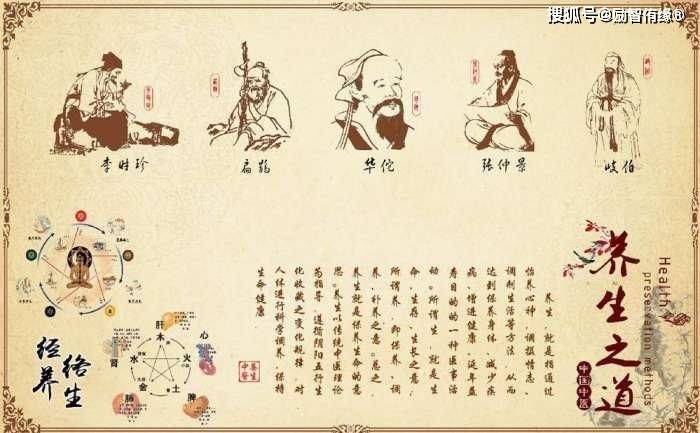 搜狐号@励智侑缘®
李时珍
扁鹊
华佗
张仲景
岐伯
养生之道
Health
preservation methods
中国中医
养生，就是指通过
怡养心神，调摄情志、
调制生活等方法，从而
达到保养身体、减少疾
病、增进健康、延年益
寿目的的一种医事活
动。所谓生，就是生
命、生存、生长之意；
所谓养，即保养、调
养、补养之意。总之，
养生就是保养生命的意
思。养生以传统中医理论
为指导，遵循阴阳五行生
化收藏之变化规律，对
人体进行科学调养，保持
生命健康
养生
中医
经络
养生
肝
木
心
火
土
脾
金
肺
水
肾